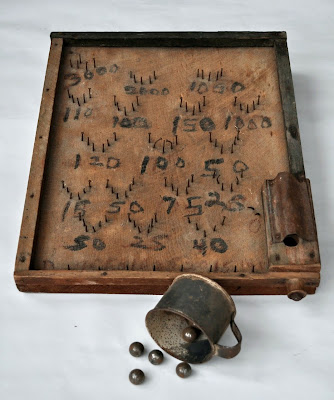 3000 2000 1050
110 100 150 1000
120 100 50
15 50 75 25
50 25 40